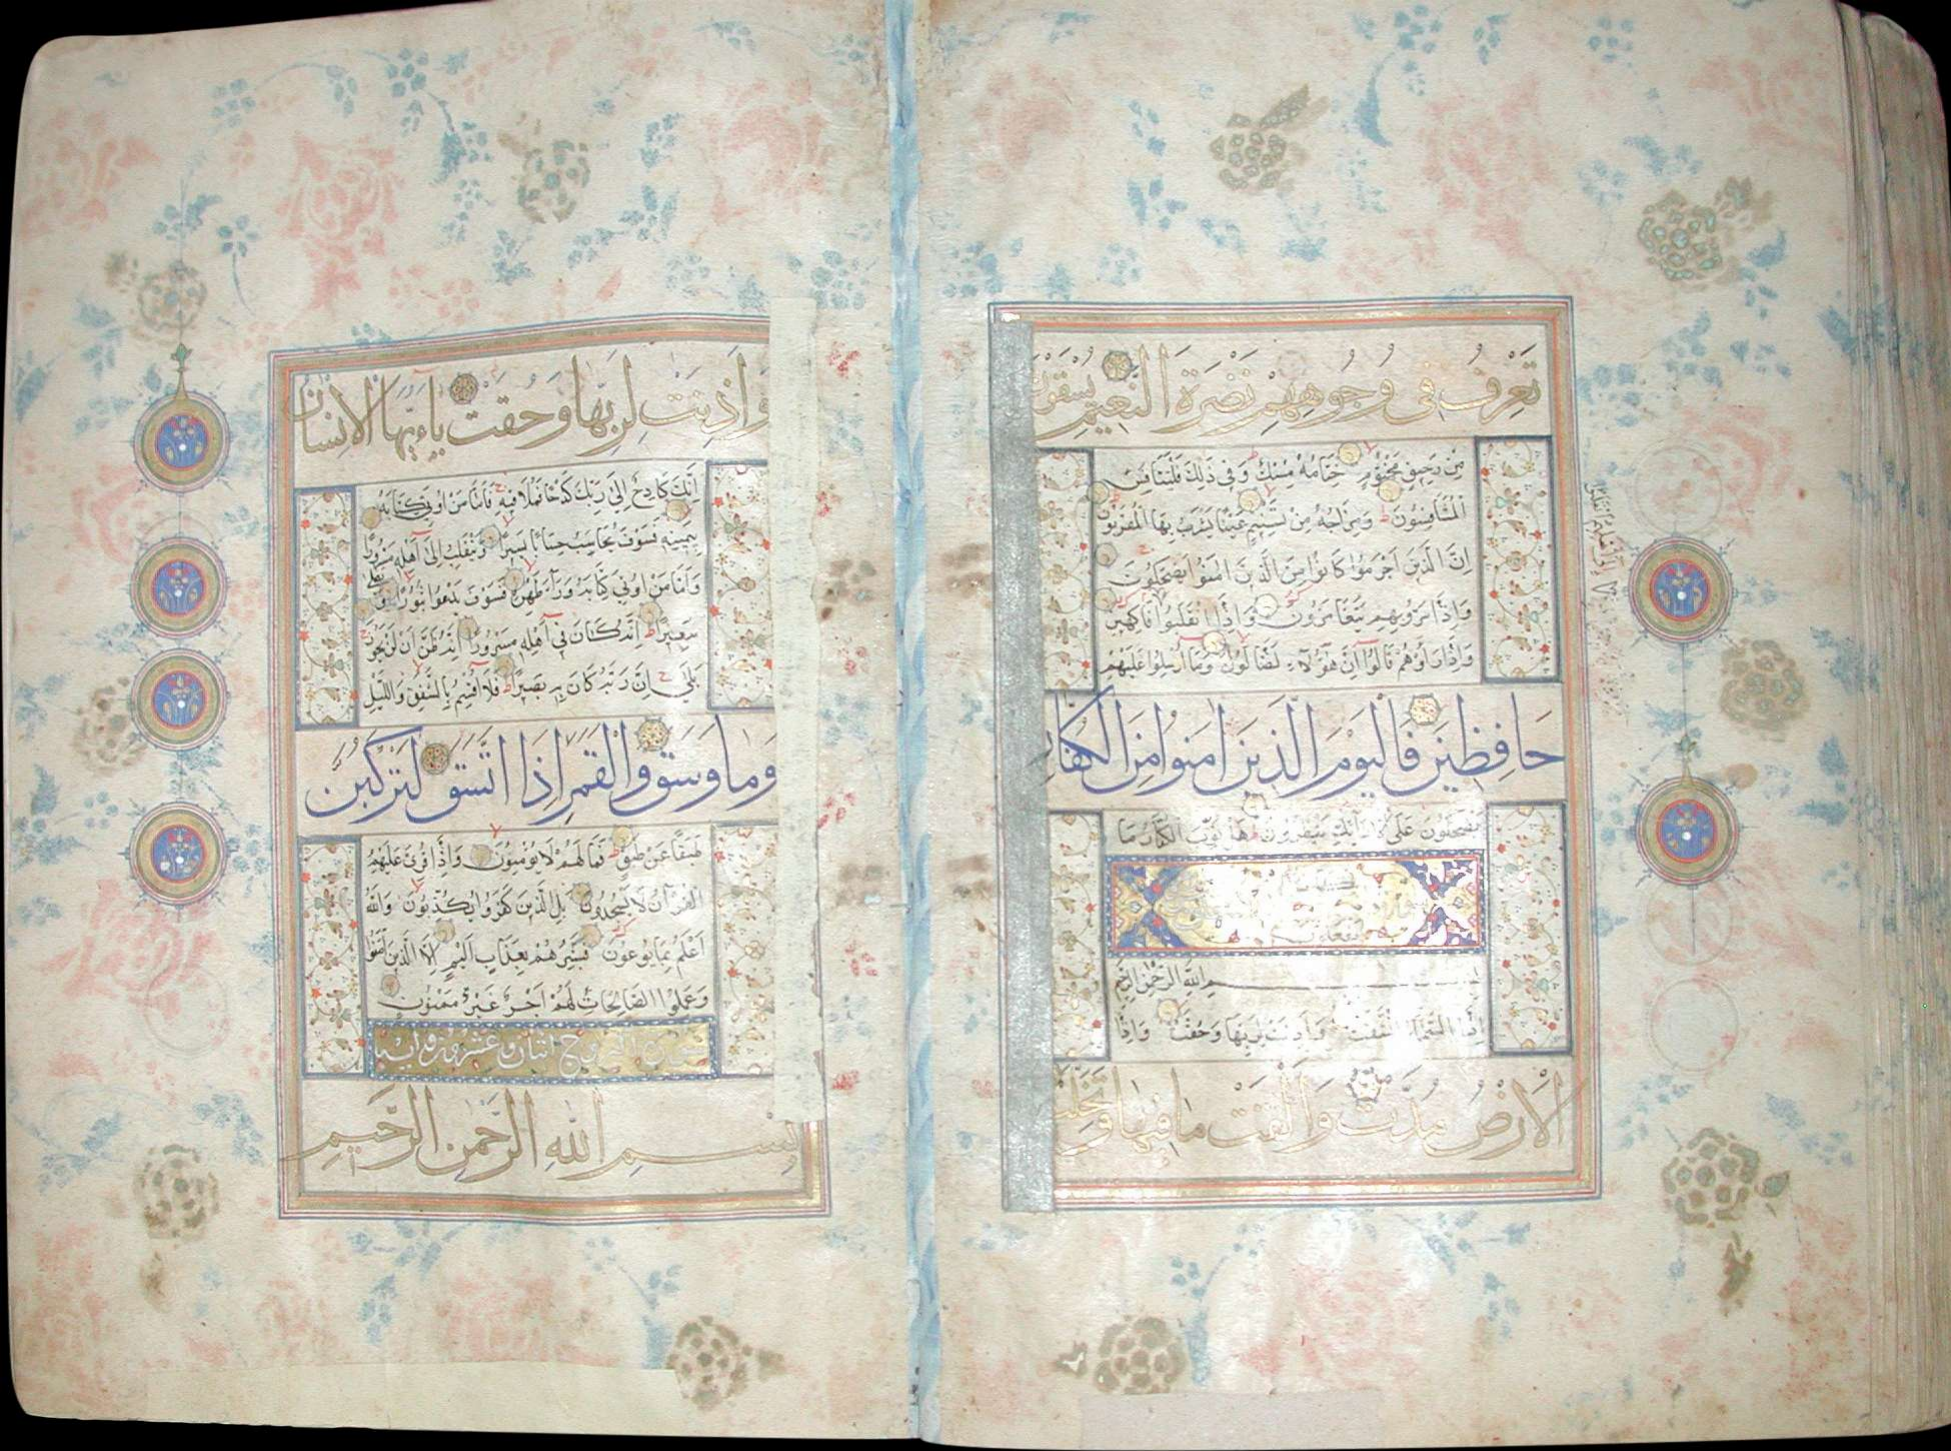 تَعْرِفُ فِي وُجُوهِهِمْ نَضْرَةَ النَّعِيمِ يُسْقَوْنَ
مِنْ رَحِيقٍ مَخْتُومٍ خِتَامُهُ مِسْكٌ وَفِي ذَلِكَ فَلْيَتَنَافَسِ
الْمُتَنَافِسُونَ وَمِزَاجُهُ مِنْ تَسْنِيمٍ عَيْنًا يَشْرَبُ بِهَا الْمُقَرَّبُونَ
إِنَّ الَّذِينَ أَجْرَمُوا كَانُوا مِنَ الَّذِينَ آمَنُوا يَضْحَكُونَ
وَإِذَا مَرُّوا بِهِمْ يَتَغَامَزُونَ وَإِذَا انْقَلَبُوا فَاكِهِينَ
وَإِذَا رَأَوْهُمْ قَالُوا إِنَّ هَؤُلَاءِ لَضَالُّونَ وَمَا أُرْسِلُوا عَلَيْهِمْ
حَافِظِينَ فَالْيَوْمَ الَّذِينَ آمَنُوا مِنَ الْكُفَّارِ
يَضْحَكُونَ عَلَى الْأَرَائِكِ يَنْظُرُونَ هَلْ ثُوِّبَ الْكُفَّارُ مَا
بسم اللَّهِ الرَّحْمَنِ الرَّحِيمِ
إِذَا السَّمَاءُ انْشَقَّتْ وَأَذِنَتْ لِرَبِّهَا وَحُقَّتْ وَإِذَا
الْأَرْضُ مُدَّتْ وَأَلْقَتْ مَا فِيهَا وَتَخَلَّتْ
وَأَذِنَتْ لِرَبِّهَا وَحُقَّتْ يَا أَيُّهَا الْإِنْسَانُ
إِنَّكَ كَادِحٌ إِلَى رَبِّكَ كَدْحًا فَمُلَاقِيهِ فَأَمَّا مَنْ أُوتِيَ كِتَابَهُ
بِيَمِينِهِ فَسَوْفَ يُحَاسَبُ حِسَابًا يَسِيرًا وَيَنْقَلِبُ إِلَى أَهْلِهِ مَسْرُورًا
وَأَمَّا مَنْ أُوتِيَ كِتَابَهُ وَرَاءَ ظَهْرِهِ فَسَوْفَ يَدْعُوا ثُبُورًا وَيَصْلَى
سَعِيرًا إِنَّهُ كَانَ فِي أَهْلِهِ مَسْرُورًا إِنَّهُ ظَنَّ أَنْ لَنْ يَحُورَ
بَلَى إِنَّ رَبَّهُ كَانَ بِهِ بَصِيرًا فَلَا أُقْسِمُ بِالشَّفَقِ وَاللَّيْلِ
وَمَا وَسَقَ وَالْقَمَرِ إِذَا اتَّسَقَ لَتَرْكَبُنَّ
طَبَقًا عَنْ طَبَقٍ فَمَا لَهُمْ لَا يُؤْمِنُونَ وَإِذَا قُرِئَ عَلَيْهِمُ
الْقُرْآنُ لَا يَسْجُدُونَ بَلِ الَّذِينَ كَفَرُوا يُكَذِّبُونَ وَاللَّهُ
أَعْلَمُ بِمَا يُوعُونَ فَبَشِّرْهُمْ بِعَذَابٍ أَلِيمٍ إِلَّا الَّذِينَ آمَنُوا
وَعَمِلُوا الصَّالِحَاتِ لَهُمْ أَجْرٌ غَيْرُ مَمْنُونٍ
سورة البروج اثنان وعشرون آية
بِسْمِ اللَّهِ الرَّحْمَنِ الرَّحِيمِ